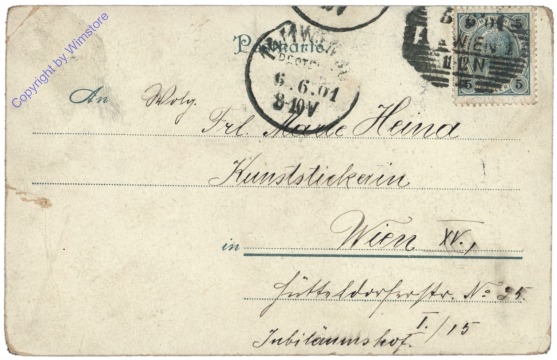 Copyright by Wimstore
Postkarte
6.6.01
8-10V
WIEN
5 5
An Wolg.
Frl. Marie Heina
Kunststickerin
in Wien XV.,
Hütteldorferstr. No 25.
Jubiläumshof. I./15